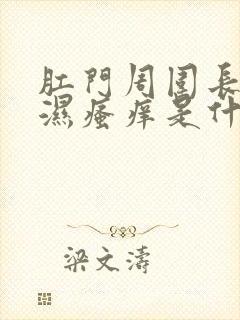 肛門周圍長
濕瘙癢是什
梁文濤